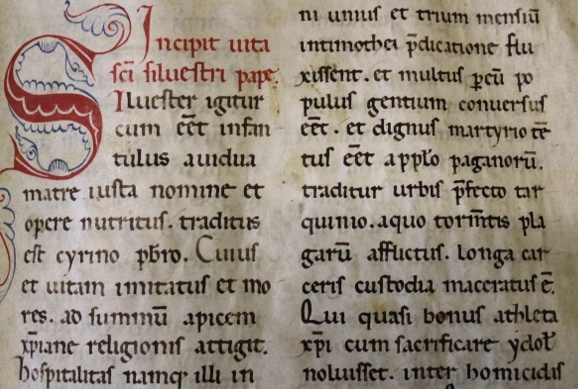 Incipit uita
sc̄i siluestri pape.
SIluester igitur
cum eēt infan
tulus auidua
matre iusta nomine et
opere nutritus. traditus
est cyrino pb̄ro. Cuius
et uitam imitatus et mo
res. ad summū apicem
xp̄iane religionis attigit.
hospitalitas namq; illi in
ni unius et trium mensiū
intimothei p̄dicatione flu
xissent. et multus ꝑ eū po
pulus gentium conuersus
eēt. et dignus martyrio tē
tus eēt appłο paganorū.
traditur urbis p̄fecto tar
quinio. aquo torm̄tis pla
garū afflictus. longa car
ceris custodia maceratus ē.
Qui quasi bonus athleta
xp̄i cum sacrificare ydoł
noluisset. inter homicidis